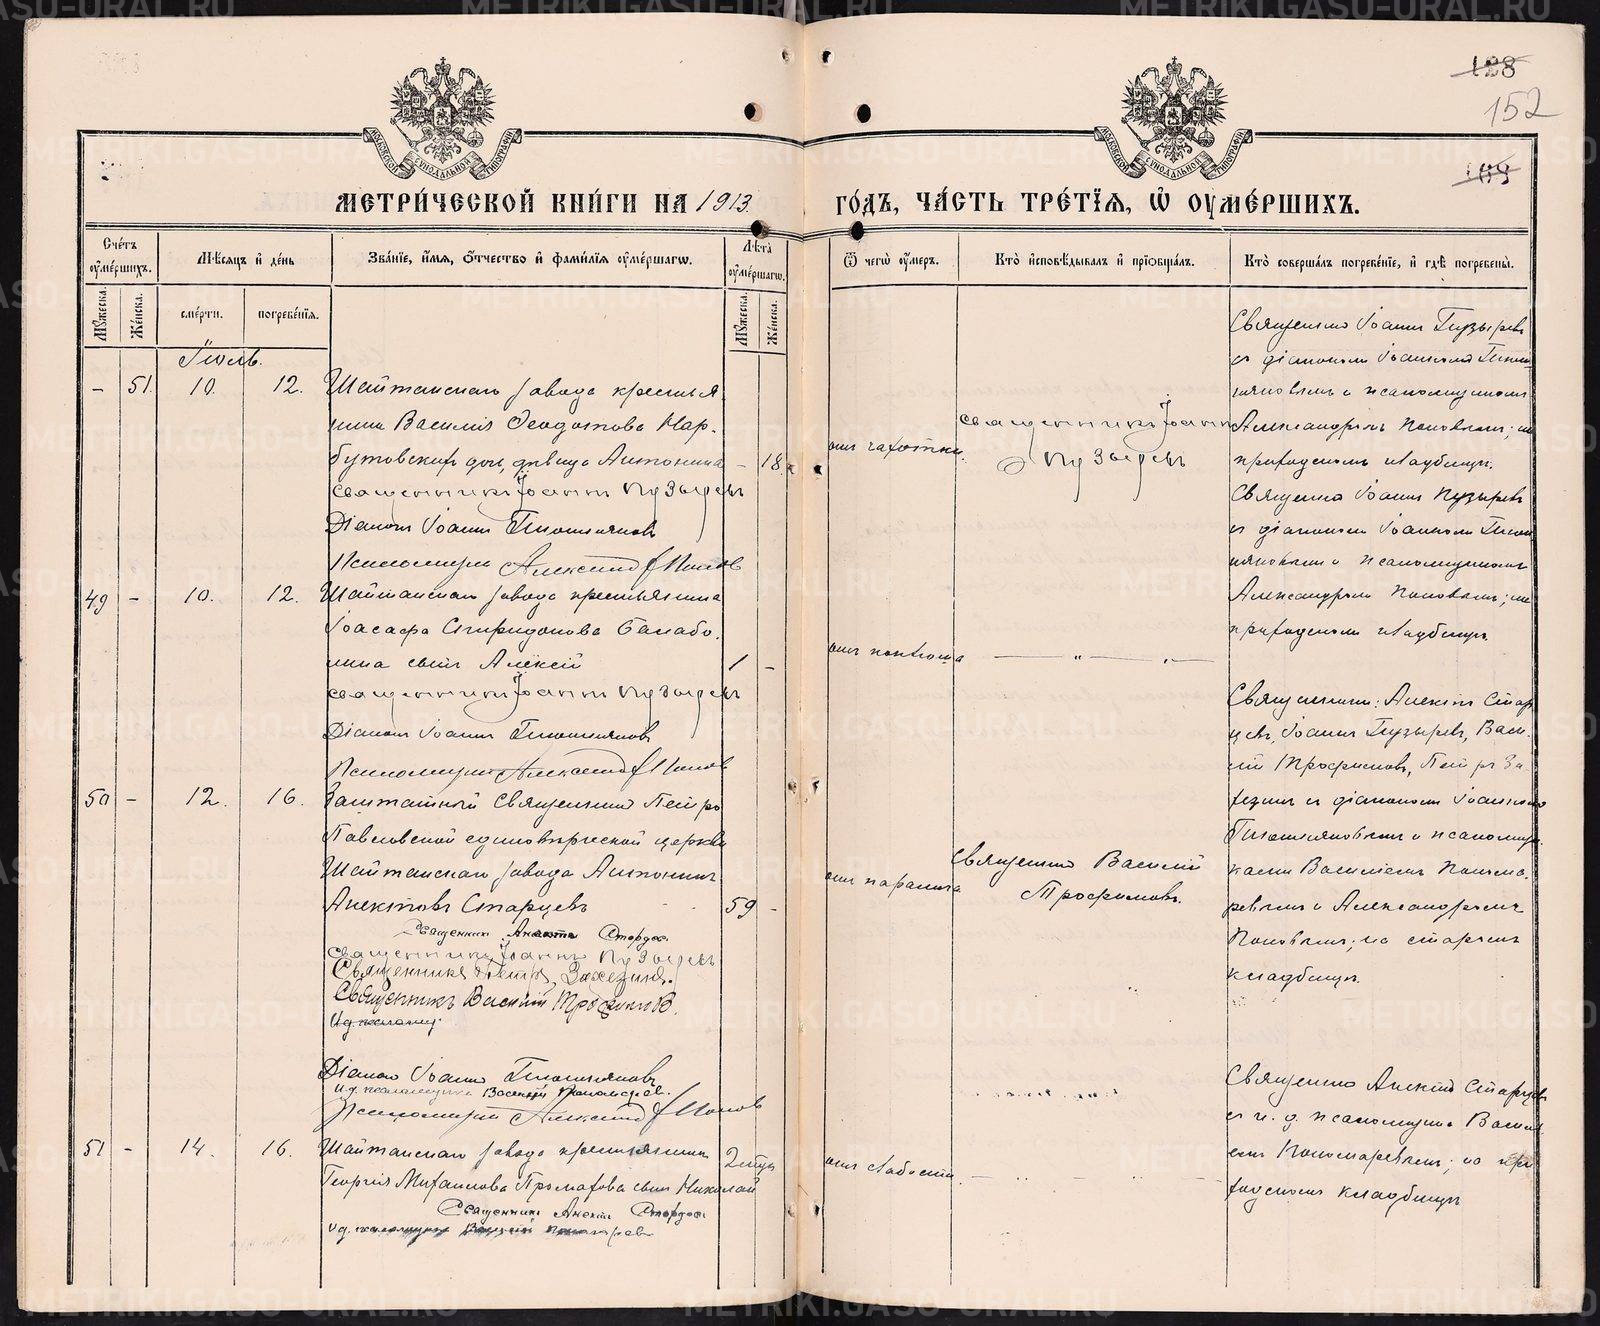 128
152
109
МЕТРИ́ЧЕСКОЙ КНИ́ГИ НА 1913
ГО́ДЪ, ЧА́СТЬ ТРЕ́ТІЯ, Ѽ ОУМЕ́РШИХЪ.
Сче́тъ оумершихъ.
Мѣсяцъ и день
Званіе, имя, отчество и фамилія оумершаго.
Лѣта оумершаго.
Ѿ чего оумеръ.
Кто исповѣдывалъ и пріобщалъ.
Кто совершалъ погребеніе, и гдѣ погребены.
Мужеска.
Женска.
смерти.
погребенія.
Мужеска.
Женска.
Іюль.
- 51. 10. 12.
Шайтанскаго завода крестья
нина Василія Ѳеодотова Нар-
бутовскихъ дочь, дѣвица Антонина - 18.
Священникъ Іоаннъ Пузыревъ
Діаконъ Іоаннъ
Псаломщикъ Александръ Поповъ
отъ чахотки.
Священникъ Іоаннъ
Пузыревъ
Священникъ Іоаннъ Пузыревъ
съ діакономъ Іоанномъ
и псаломщикомъ
Александромъ Поповымъ; на
приходскомъ кладбищѣ.
49 - 10. 12.
Шайтанскаго завода крестьянина
Іоасафа Спиридонова Балабо-
нина сынъ Алексій 1 -
Священникъ Іоаннъ Пузыревъ
Діаконъ Іоаннъ
Псаломщикъ Александръ Поповъ
отъ поноса
Священникъ Іоаннъ Пузыревъ
съ діакономъ Іоанномъ
и псаломщикомъ
Александромъ Поповымъ; на
приходскомъ кладбищѣ.
50 - 12. 16.
Заштатный Священникъ Петро
Павловской единовѣрческой церкви
Шайтанскаго завода Антонинъ
Анектовъ Старцевъ 59 -
Священникъ Анектъ Старцевъ
Священникъ Іоаннъ Пузыревъ
Священникъ Петръ
Священникъ Василій Трофимовъ.
И. д. псаломщ.
Діаконъ Іоаннъ
И. д. псаломщика Василій Пономаревъ.
Псаломщикъ Александръ Поповъ
отъ паралича
Священникъ Василій
Трофимовъ.
Священники: Анектъ Стар
цевъ, Іоаннъ Пузыревъ, Васи-
лій Трофимовъ, Петръ
съ діакономъ Іоанномъ
и псаломщи-
ками Василіемъ Понома-
ревымъ и Александромъ
Поповымъ; на старомъ
кладбищѣ.
51 - 14. 16.
Шайтанскаго завода крестьянина
Георгія Михаилова сынъ Николай
Священникъ Анектъ Старцевъ
И. д. псаломщика Василій Пономаревъ
отъ слабости.
Священникъ Анектъ Старцевъ
съ и. д. псаломщика Васи-
ліемъ Пономаревымъ; на при
ходскомъ кладбищѣ